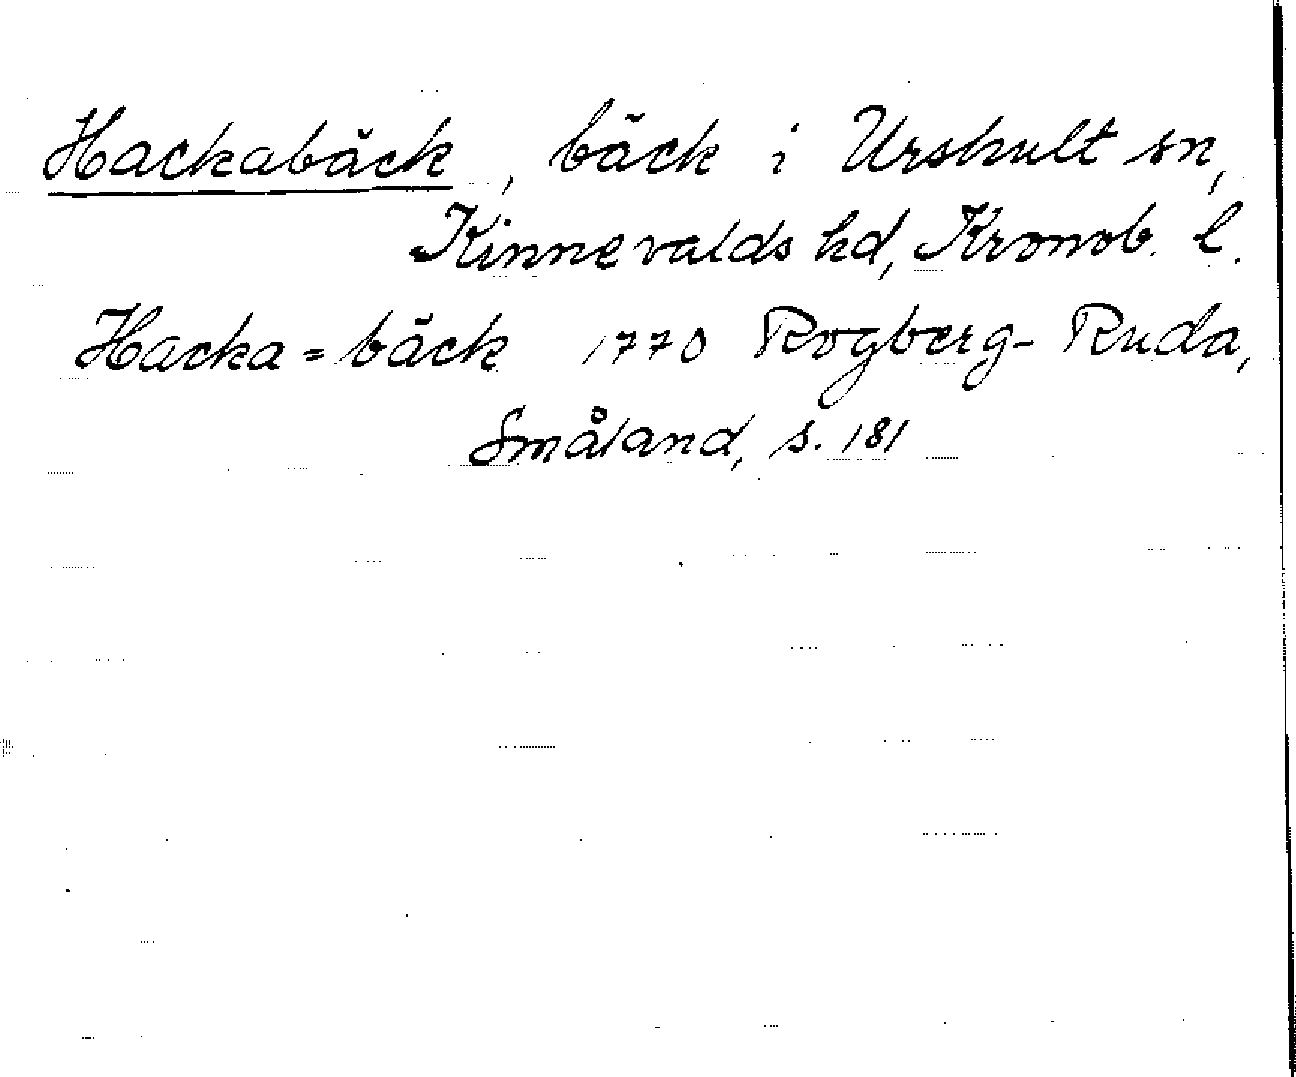 Hackabäck, bäck i Urshult sn,
Kinnevalds hd, Kronob. l.
Hacka=bäck 1770 Rogberg-Ruda,
Småland, s. 181